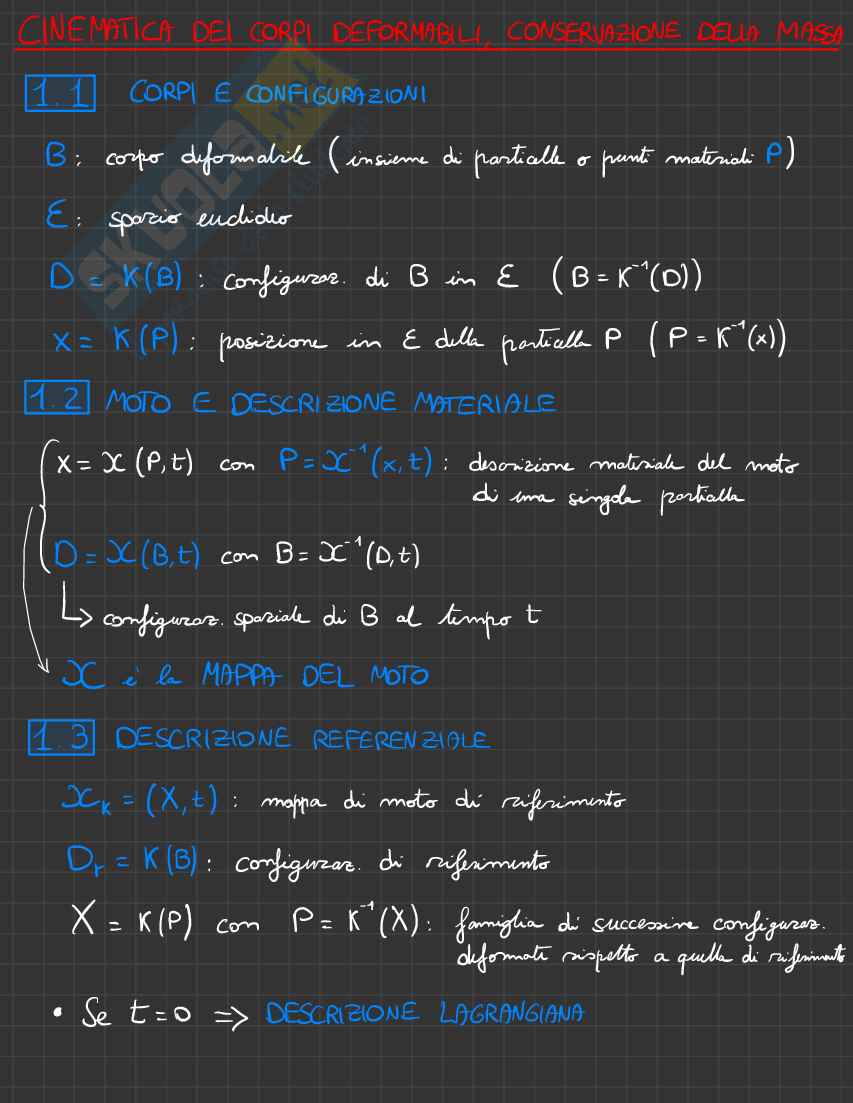 CINEMATICA DEI CORPI DEFORMABILI, CONSERVAZIONE DELLA MASSA
1.1 CORPI E CONFIGURAZIONI
B: corpo deformabile (insieme di particelle o punti materiali P)
E: spazio euclideo
D = K(B): configuraz. di B in E (B = K⁻¹(D))
x = K(P): posizione in E della particella P (P = K⁻¹(x))
1.2 MOTO E DESCRIZIONE MATERIALE
x = X(P,t) con P = X⁻¹(x,t): descrizione materiale del moto
di una singola particella
D = X(B,t) con B = X⁻¹(D,t)
↳ configuraz. spaziale di B al tempo t
X è la MAPPA DEL MOTO
1.3 DESCRIZIONE REFERENZIALE
Xₖ = (X,t): mappa di moto di riferimento
Dᵣ = K(B): configuraz. di riferimento
X = K(P) con P = K⁻¹(X): famiglia di successive configuraz.
deformate rispetto a quella di riferimento
• Se t=0 => DESCRIZIONE LAGRANGIANA
SKUOLA.net